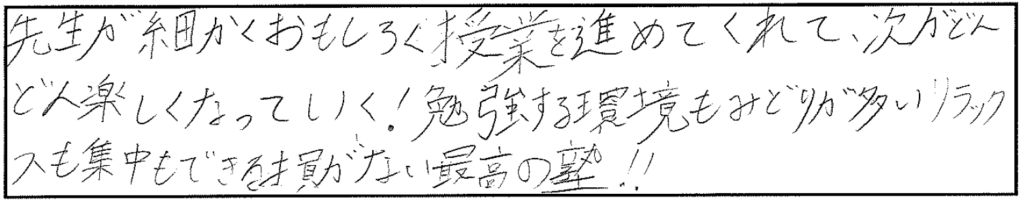 先生が細かくおもしろく授業を進めてくれて、次がどん
どん楽しくなっていく!勉強する環境もみどりが多いリラック
スも集中もできる損がない最高の塾!!